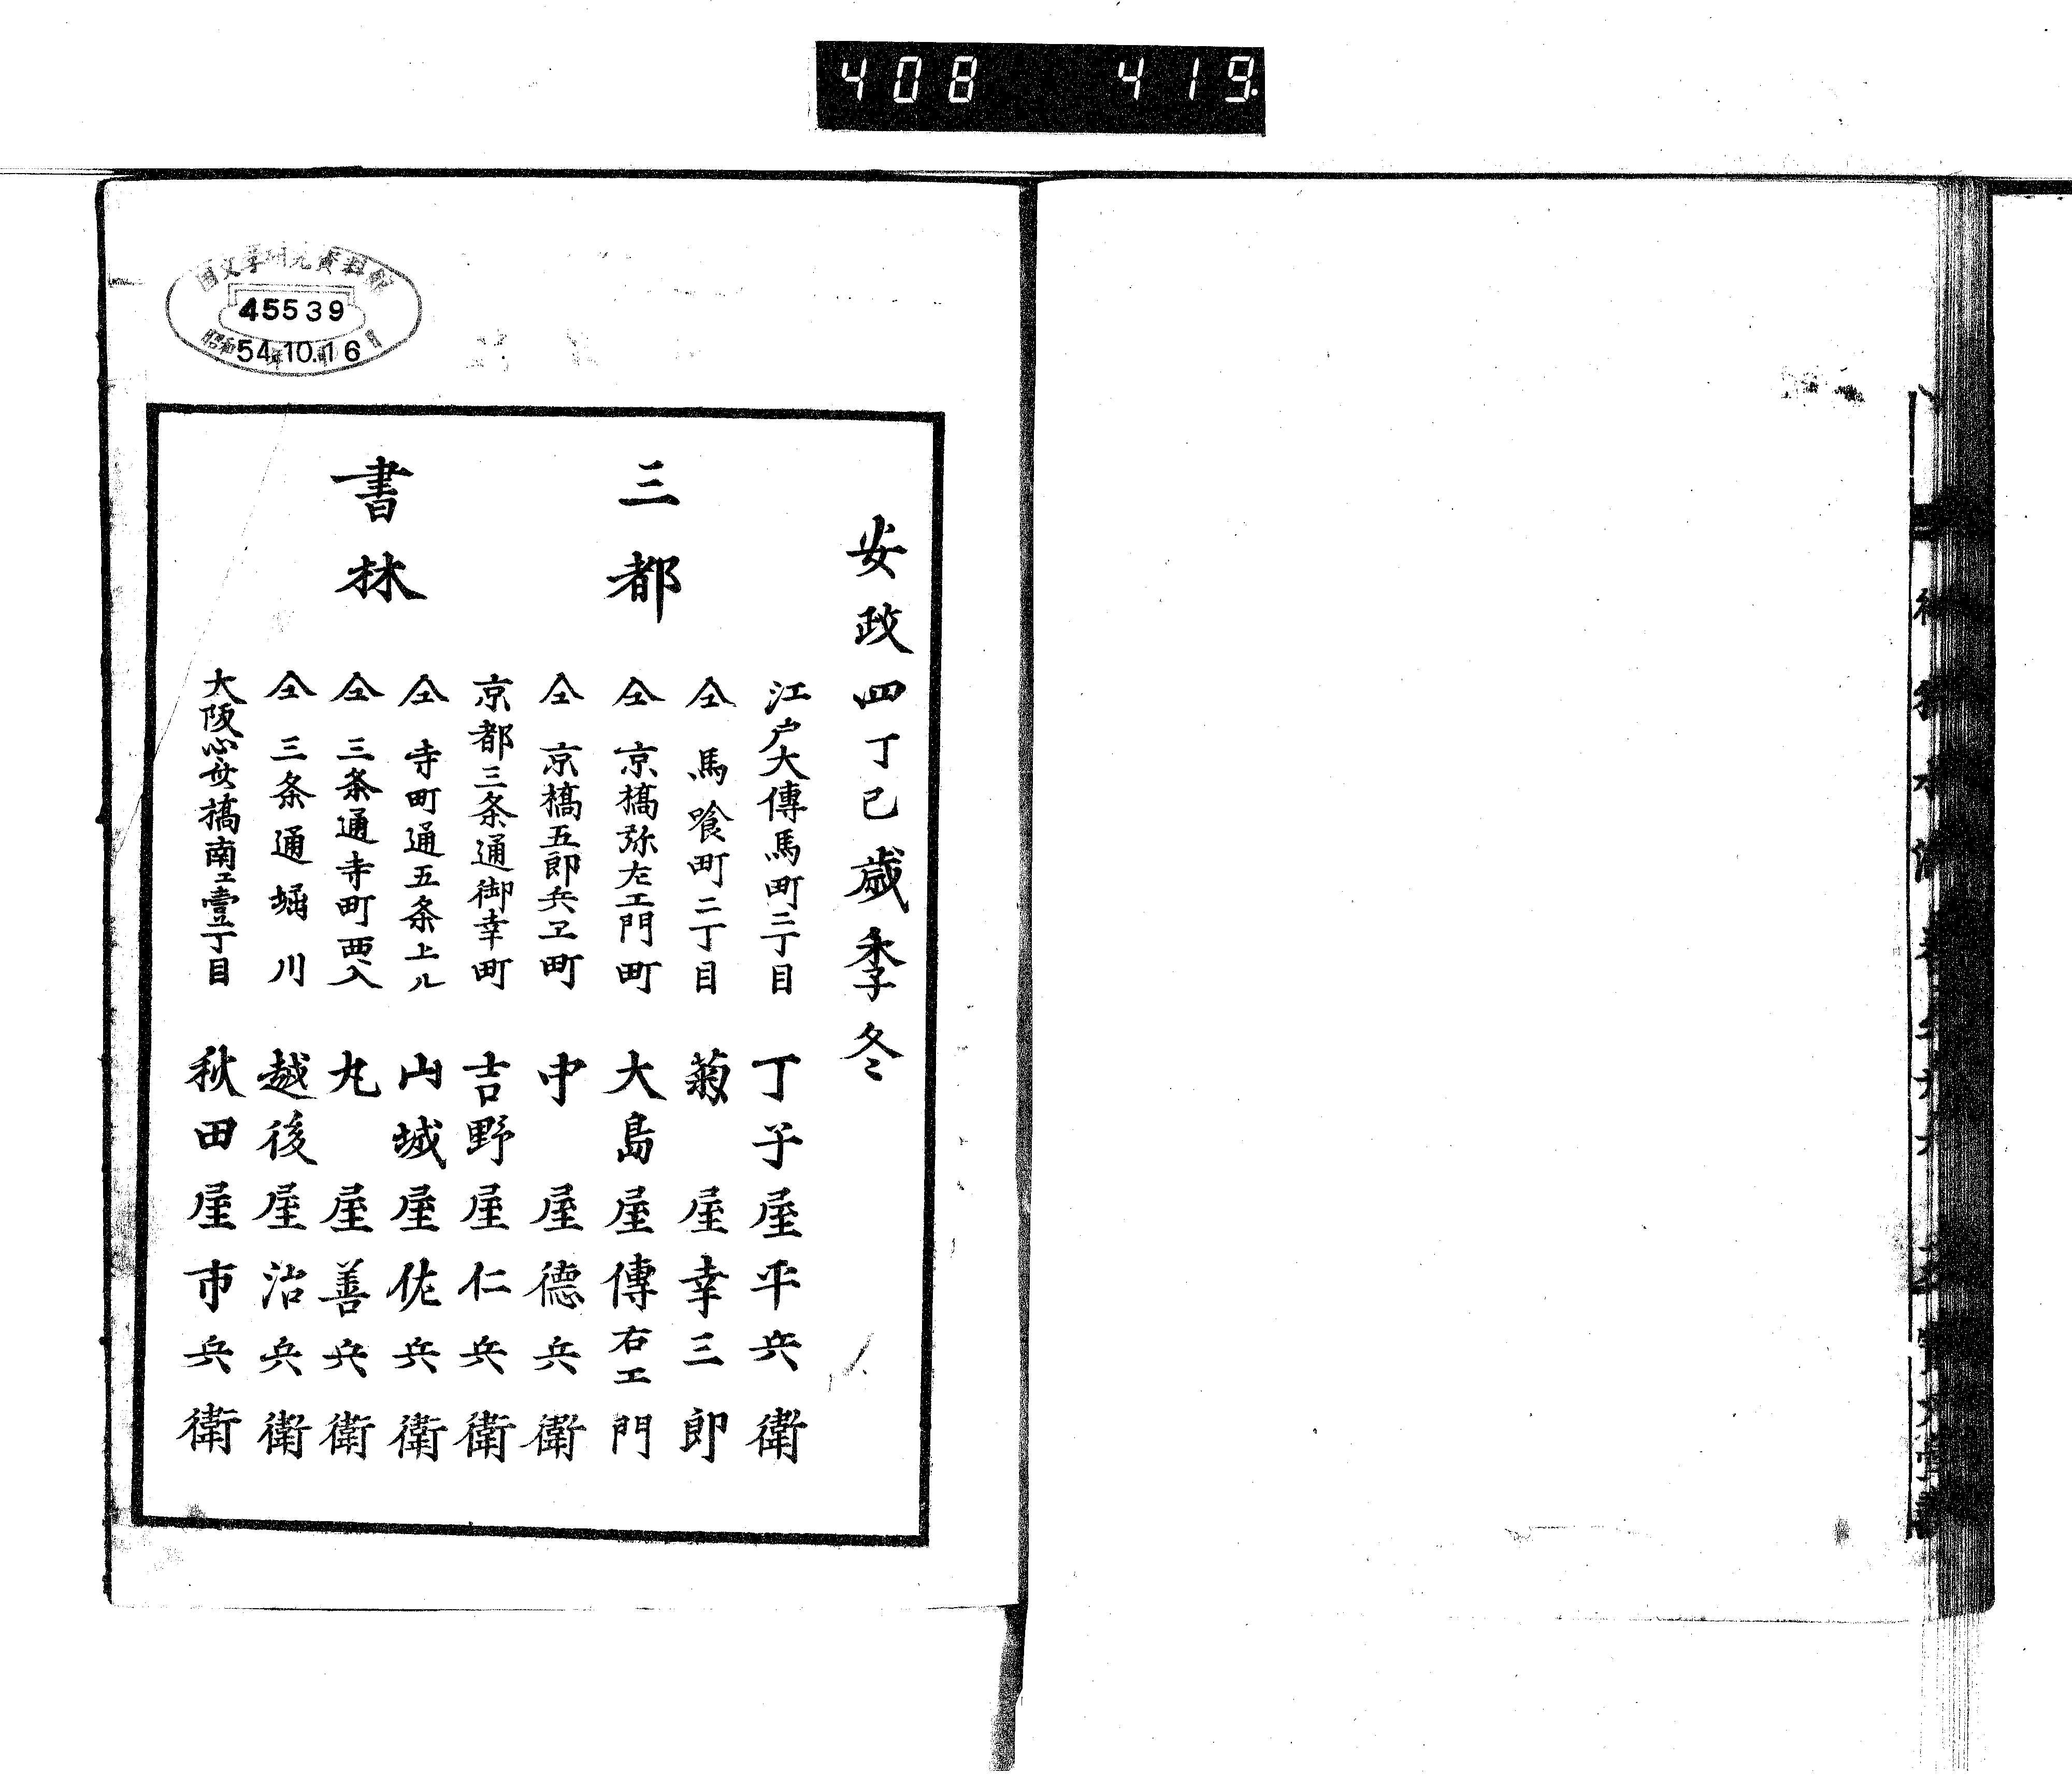 408 419.
國文學研究資料館
45539
昭和54年10月16日
安政四丁巳歳季冬
三都
書林
江戸大傳馬町三丁目 丁子屋平兵衛
仝 馬喰町二丁目 菊屋幸三郎
仝 京橋弥左エ門町 大島屋傳右エ門
仝 京橋五郎兵ヱ町 中屋德兵衛
京都三条通御幸町 吉野屋仁兵衛
仝 寺町通五条上ル 山城屋佐兵衛
仝 三条通寺町西入 丸屋善兵衛
仝 三条通堀川 越後屋治兵衛
大阪心斎橋南エ壹丁目 秋田屋市兵衛